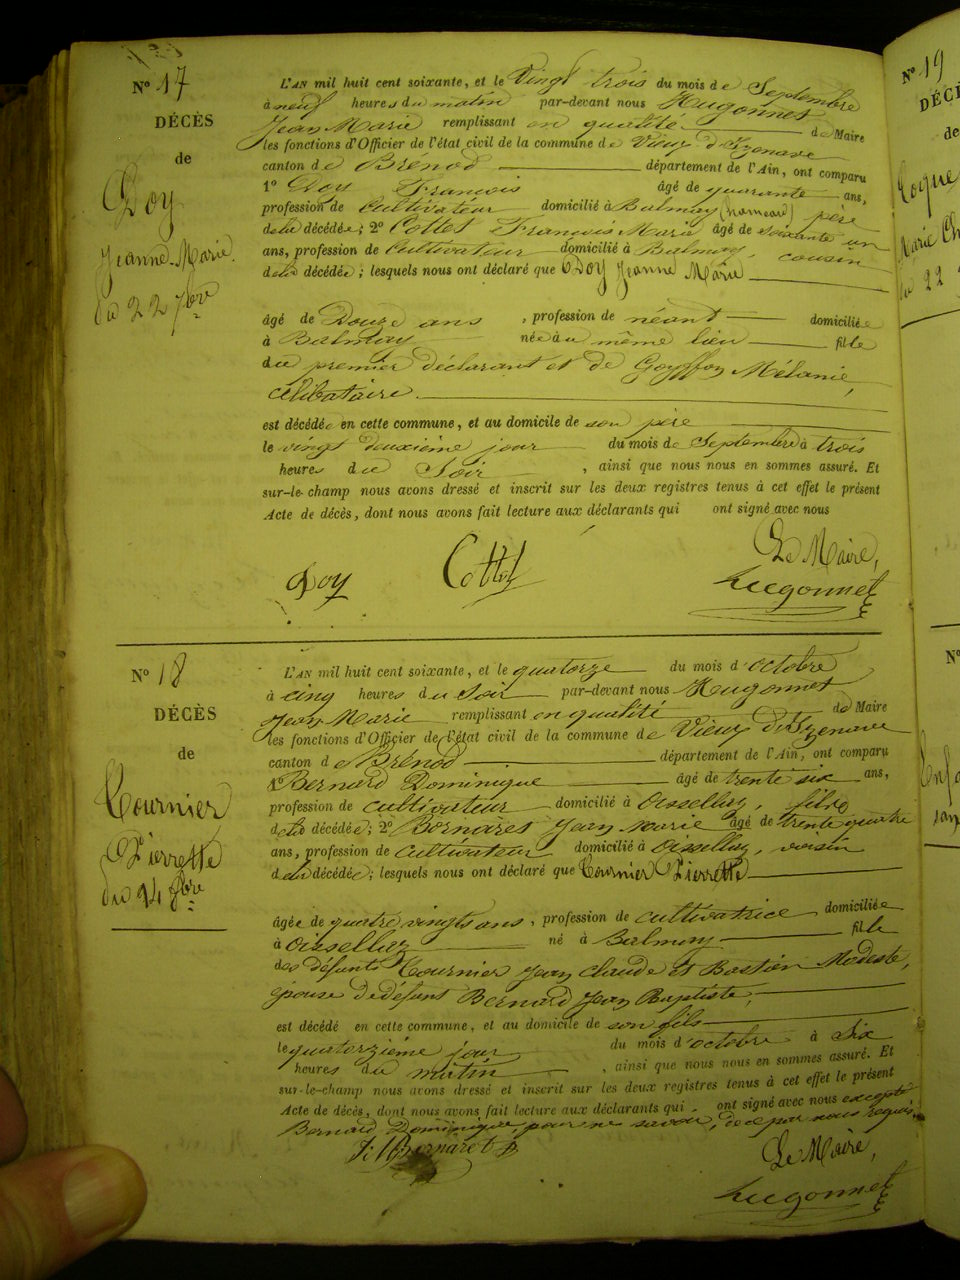 N° 17
DÉCÈS
de
Doy
Jeanne-Marie.
du 22 7bre
L'AN mil huit cent soixante, et le Vingt trois du mois de Septembre
à neuf heures du matin par-devant nous Hugonnet
Jean Marie remplissant en qualité de Maire
les fonctions d'Officier de l'état civil de la commune de Vieux d'Izenave
canton de Brénod département de l'Ain, ont comparu
1° Doy François âgé de quarante ans,
profession de Cultivateur domicilié à Balmay (hameau) père
de la décédée; 2° Cottet François Marie âgé de soixante un
ans, profession de Cultivateur domicilié à Balmay, cousin
de la décédée; lesquels nous ont déclaré que Doy Jeanne Marie
âgé de Douze ans, profession de néant domiciliée
à Balmay née au même lieu fille
du premier déclarant et de Goyffon Mélanie,
célibataire.
est décédée en cette commune, et au domicile de son père
le vingt deuxième jour du mois de Septembre à trois
heures du Soir, ainsi que nous nous en sommes assuré. Et
sur-le-champ nous avons dressé et inscrit sur les deux registres tenus à cet effet le présent
Acte de décès, dont nous avons fait lecture aux déclarants qui ont signé avec nous
Le Maire,
Doy Cottet Hugonnet
N° 18
DÉCÈS
de
Tournier
Pierrette
du 14 8bre
L'AN mil huit cent soixante, et le quatorze du mois d'octobre
à cinq heures du Soir par-devant nous Hugonnet
Jean Marie remplissant en qualité de Maire
les fonctions d'Officier de l'état civil de la commune de Vieux d'Izenave
canton de Brénod département de l'Ain, ont comparu
1° Bernard Dominique âgé de trente six ans,
profession de cultivateur domicilié à Oisselliaz, fils
de la décédée; 2° Bornarès Jean Marie âgé de trente quatre
ans, profession de Cultivateur domicilié à Oisselliaz, voisin
de la décédée; lesquels nous ont déclaré que Tournier Pierrette
âgée de quatre vingts ans, profession de cultivatrice domiciliée
à Oisselliaz né à Balmay fille
des défunts Tournier Jean Claude et Bastien Modeste,
épouse de défunt Bernard Jean Baptiste,
est décédé en cette commune, et au domicile de son fils
le quatorzième jour du mois d'octobre à Six
heures du matin, ainsi que nous nous en sommes assuré. Et
sur-le-champ nous avons dressé et inscrit sur les deux registres tenus à cet effet le présent
Acte de décès, dont nous avons fait lecture aux déclarants qui ont signé avec nous excepté
Bernard Dominique, pour ne savoir, de ce par nous requis.
Le Maire,
Hugonnet
N° 19
DÉCÈ
de